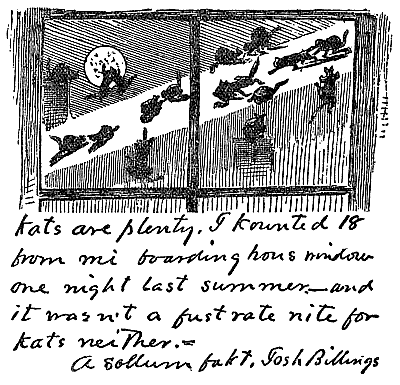 Kats are plenty. I kounted 18
from mi boarding hous window
one night last summer—and
it wasn't a fust rate nite for
Kats neither.=
A sollum fakt, Josh Billings